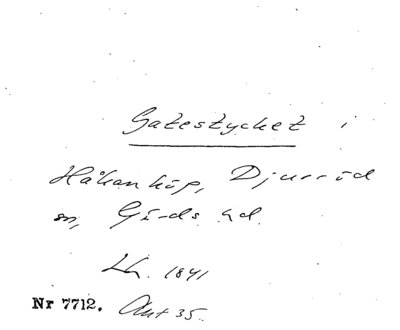 Gatestycket i
Håkanköp, Djurröd
sn, Gärds hd.
Lh. 1841
Nr 7712. Akt 35.